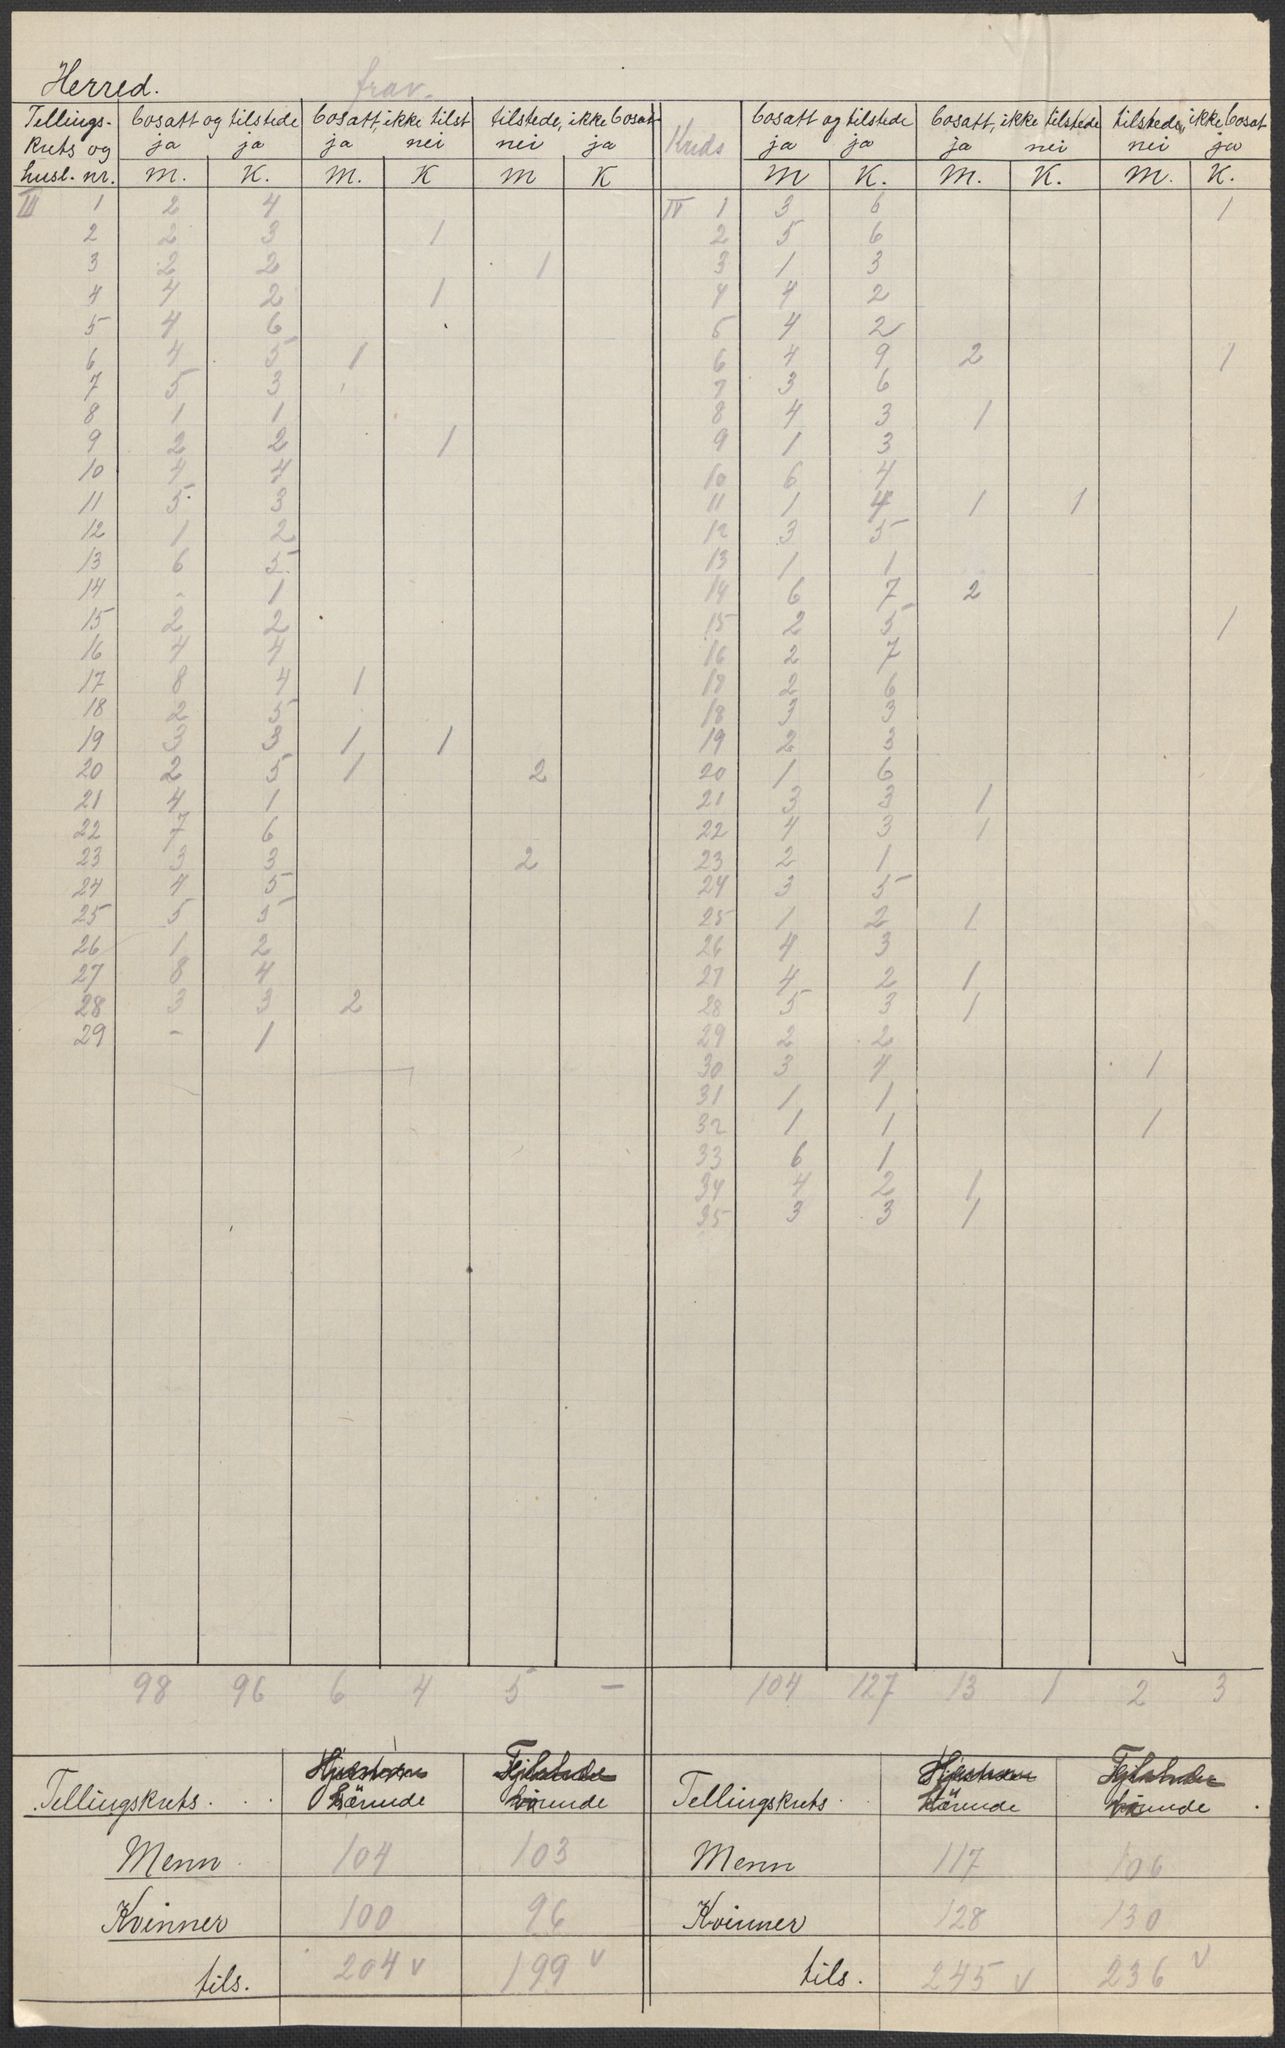 Herred.
frav.
Tellings- bosatt og tilstede bosatt, ikke tilst tilstede, ikke bosat
krets og ja ja ja nei nei ja
husl. nr. M. K. M. K M K
III 1 2 4
2 2 3 1
3 2 2 1
4 4 2 1
5 4 6
6 4 5 1
7 5 3
8 1 1
9 2 2 1
10 4 4
11 5 3
12 1 2
13 6 5
14 - 1
15 2 2
16 4 4
17 8 4 1
18 2 5
19 3 3 1 1
20 2 5 1 2
21 4 1
22 7 6
23 3 3 2
24 4 5
25 5 5
26 1 2
27 8 4
28 3 3 2
29 - 1
98 96 6 4 5 -
Tellingskrets
hörende
Menn 104 103
Kvinner 100 96
tils. 204 v 199 v
bosatt og tilstede bosatt, ikke tilstede tilstede, ikke bosat
Krids ja ja ja nei nei ja
M K. M. K. M. K.
IV 1 3 6 1
2 5 6
3 1 3
4 4 2
5 4 2
6 4 9 2 1
7 3 6
8 4 3 1
9 1 3
10 6 4
11 1 4 1 1
12 3 5
13 1 1
14 6 7 2
15 2 5 1
16 2 7
18 2 6
18 3 3
19 2 3
20 1 6
21 3 3 1
22 4 3 1
23 2 1
24 3 5
25 1 2 1
26 4 3
27 4 2 1
28 5 3 1
29 2 2
30 3 4 1
31 1 1
32 1 1 1
33 6 1
34 4 2 1
35 3 3 1
104 127 13 1 2 3
Tellingskrets
hörende
Menn 117 106
Kvinner 128 130
tils. 245 v 236 v